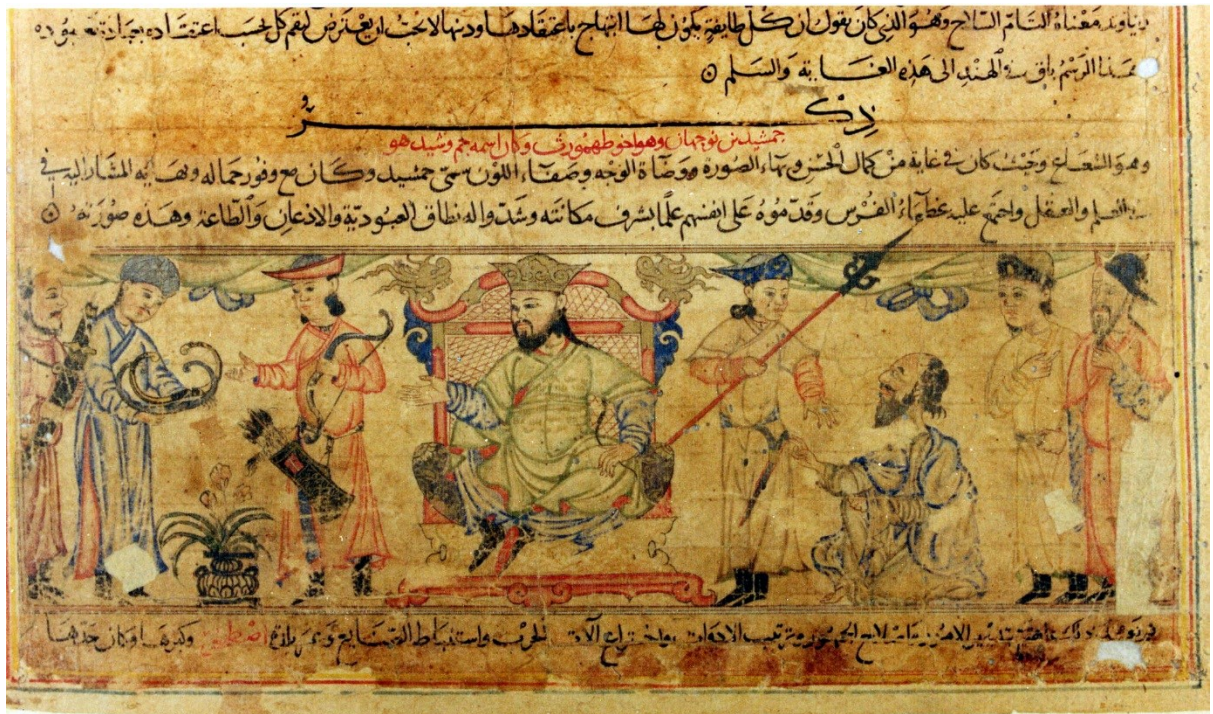 معناه التام السلاح وهو الذي كان يقول ان كل طايفة يكون لها ابتهاج باعتقادها ودينها لا يجب ان يعترض
الرسم باق في الهند الى هذه الغاية والسلم ۞
ذكر
جمشيد بن نوجهان وهو اخو طهمورث وكان اسمه جم وشيد هو
وهو الشعاع وحيث كان في غاية من كمال الحسن وبهاء الصوره ووضاة الوجه وصفاء اللون سمي جمشيد وكان مع وفور جماله وبهايه المشار اليه في
العلم والعقل واجتمع عليه عظماء الفرس وقدموه على انفسهم علما بشرف مكانته وشدوا له نطاق العبودية والاذعان والطاعة وهذه صورته ۞
الامور الجمهور وترتيب واختراع آلات الحرب واستنباط الصنايع اصطخر وكان